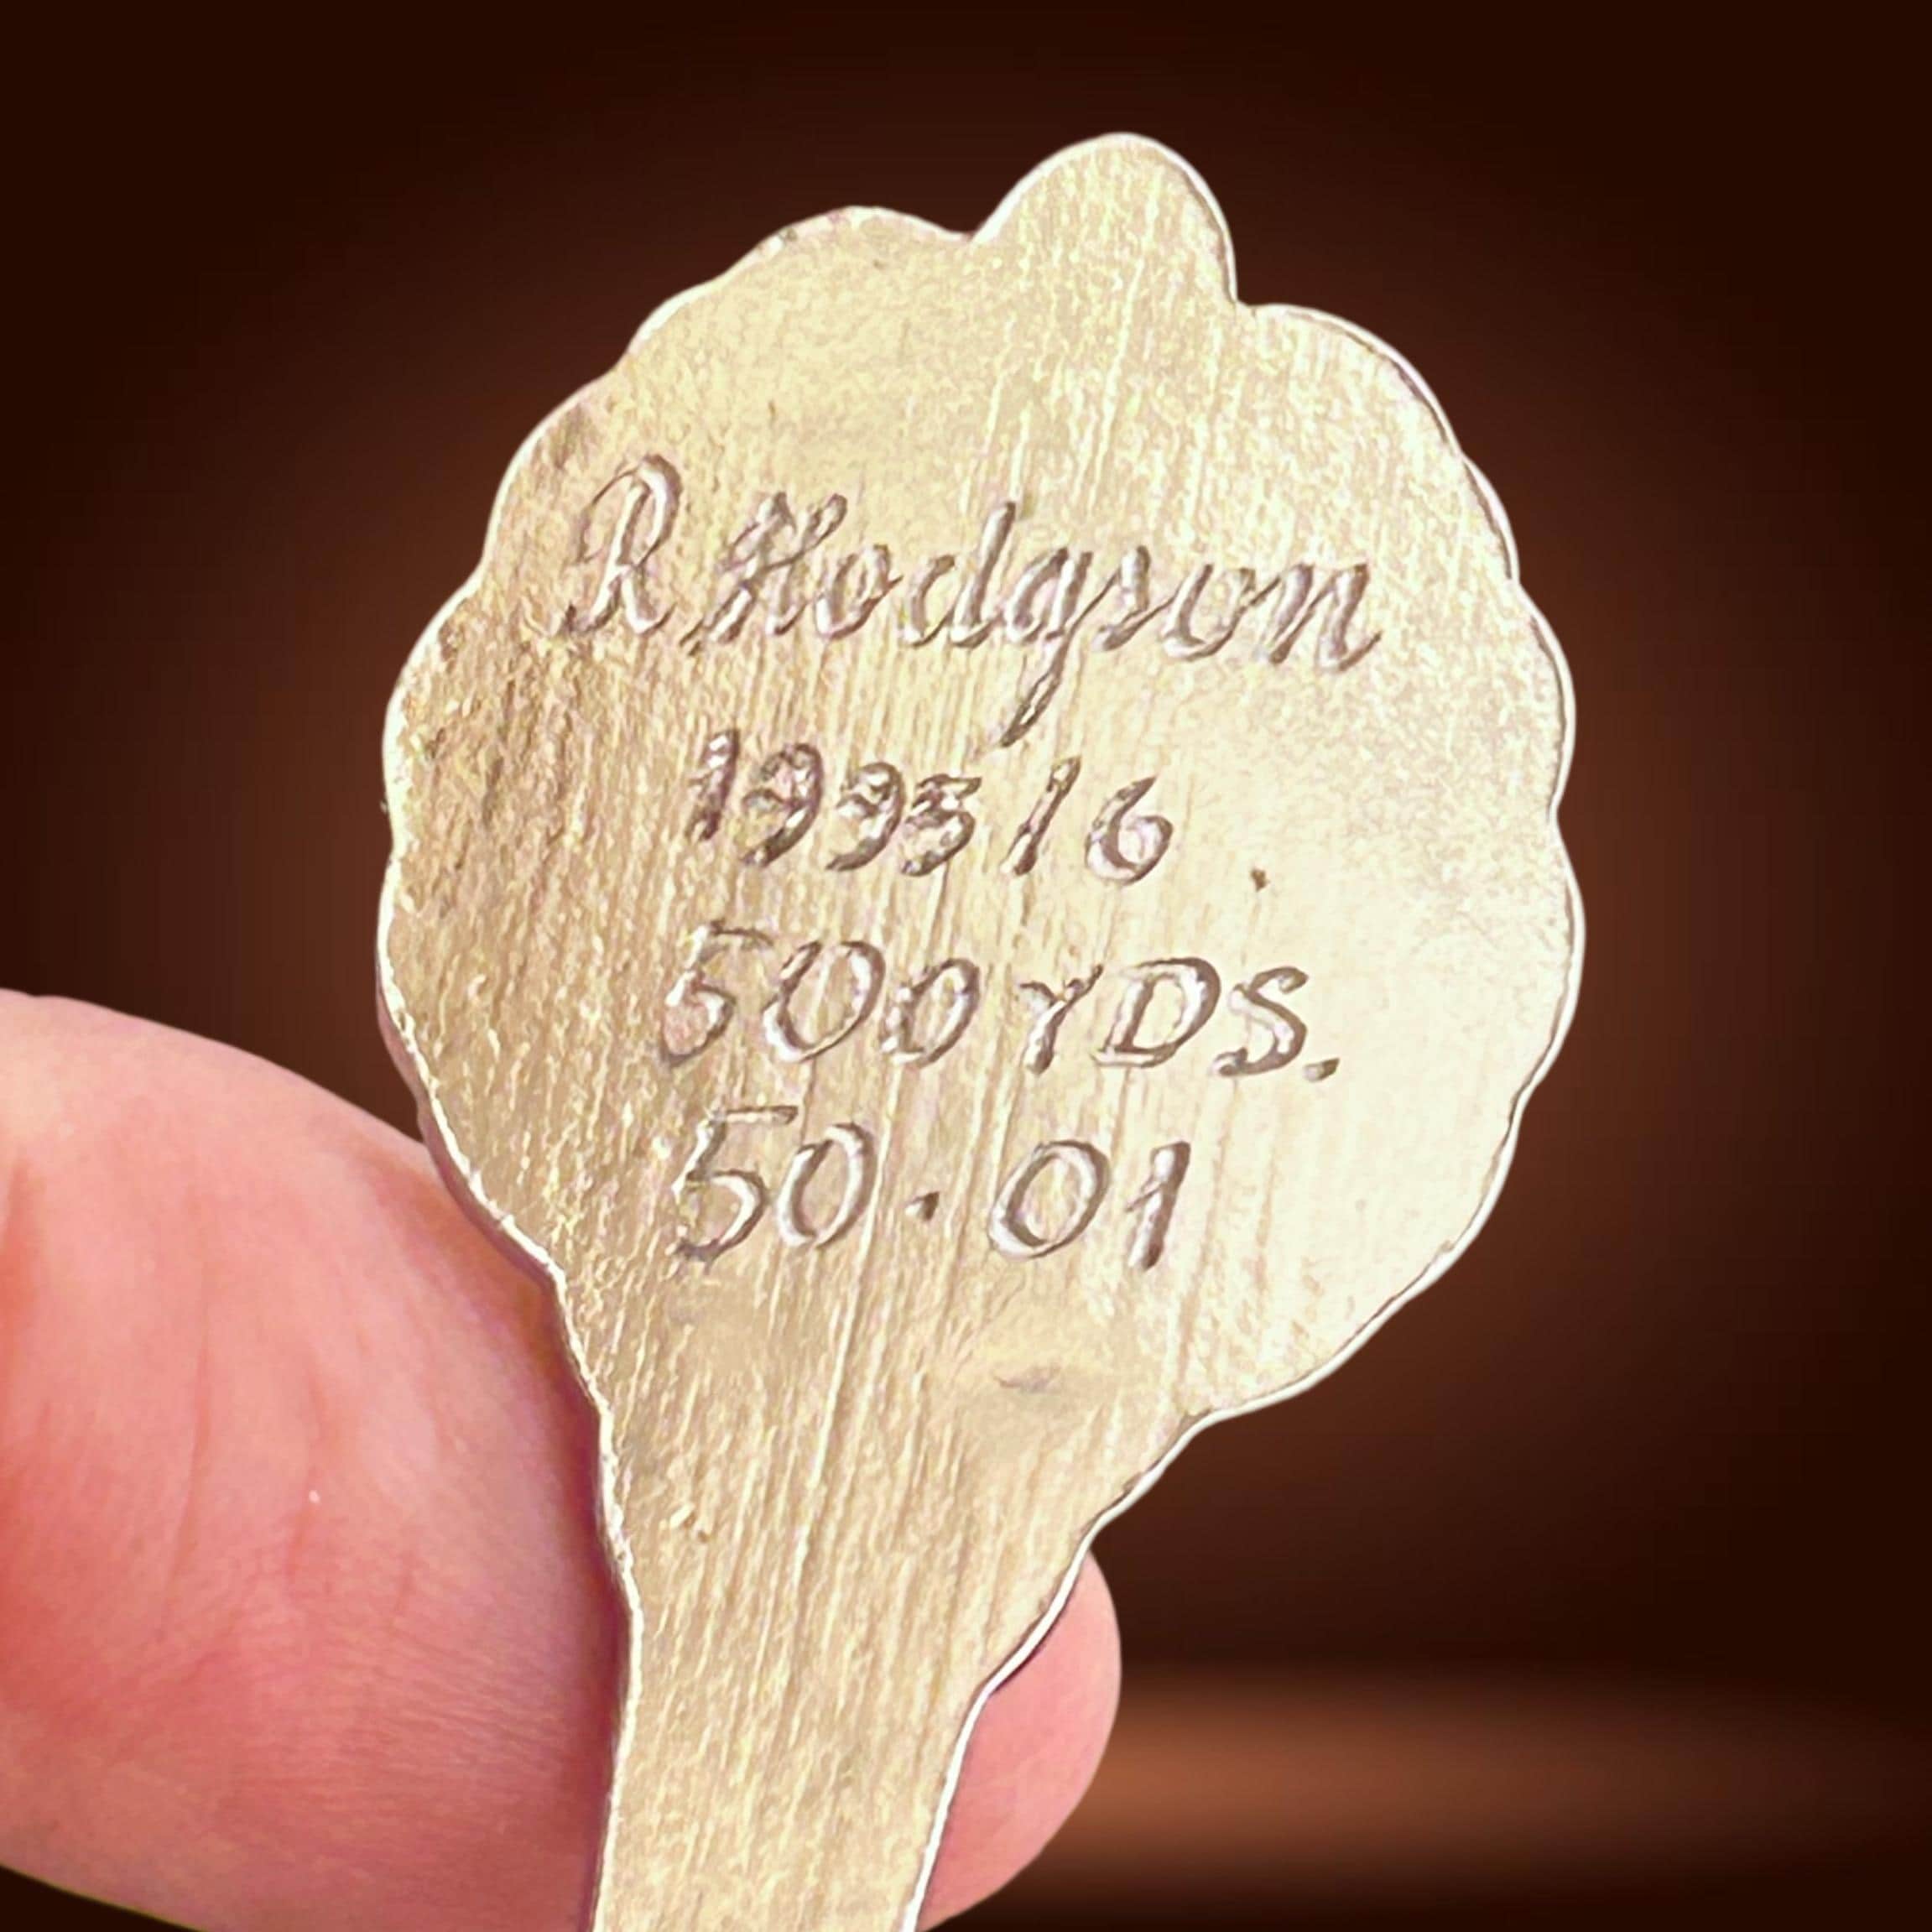 R Hodgson
1995/6
500 YDS.
50.01